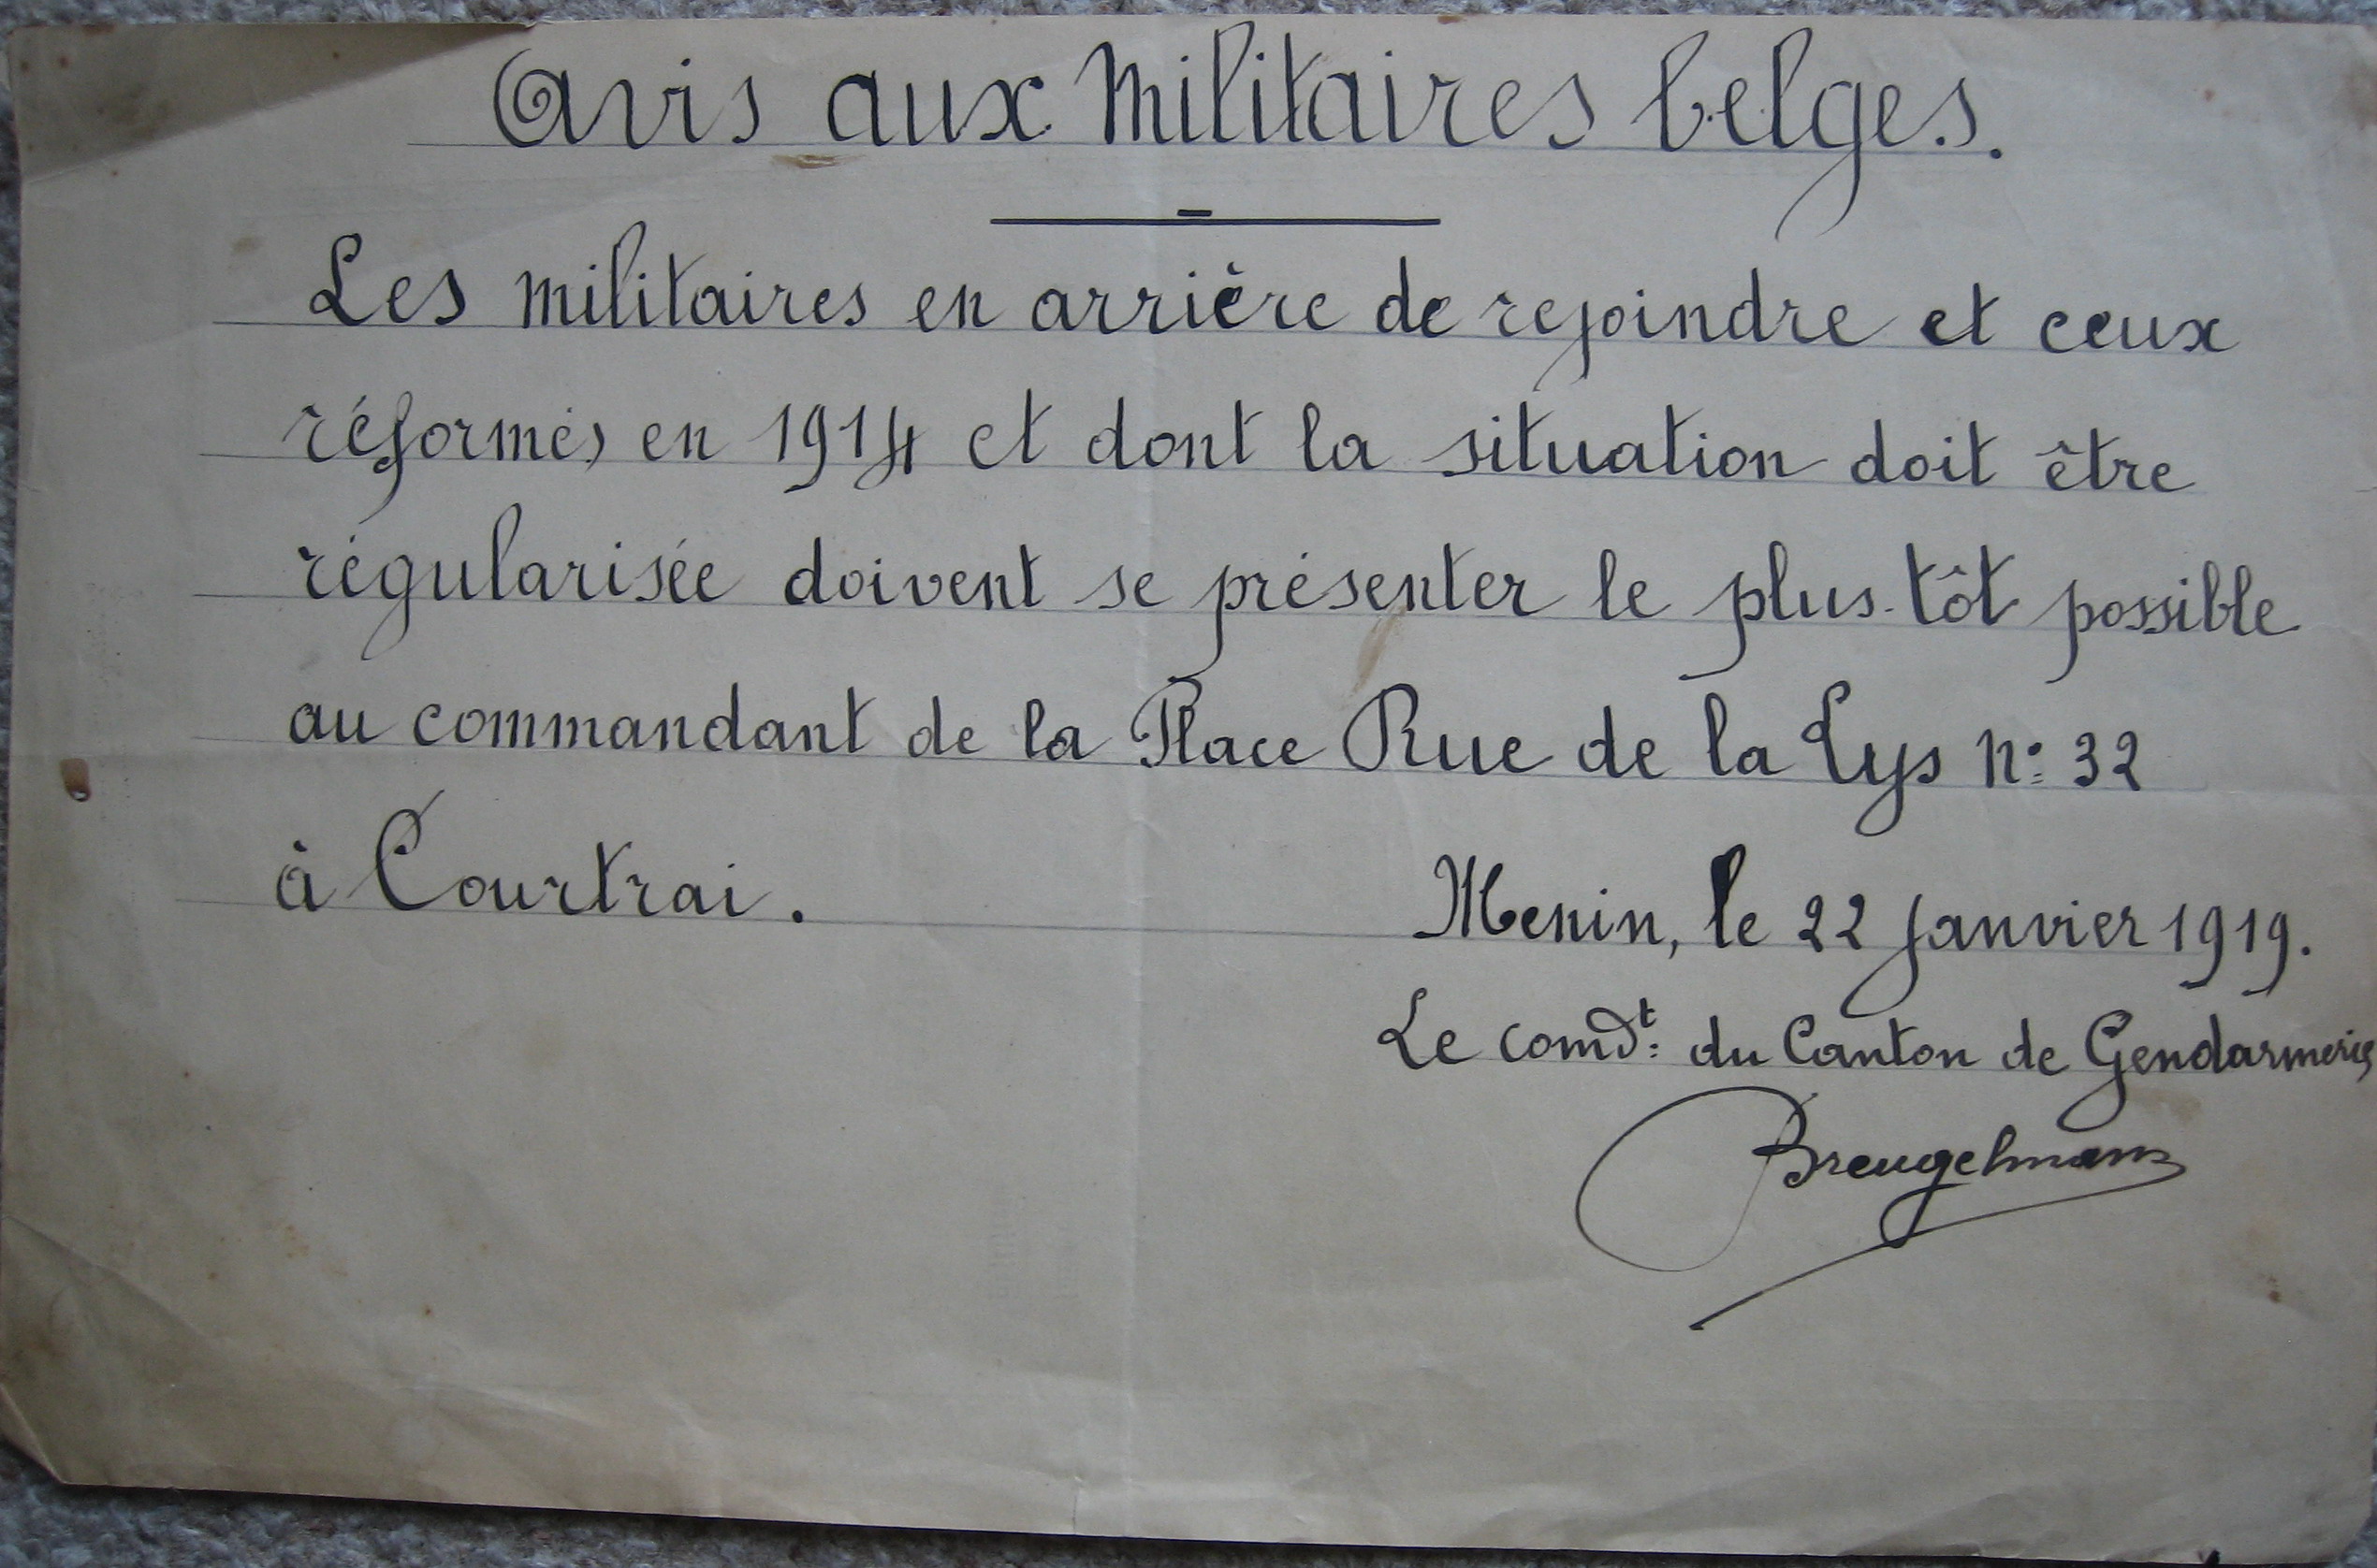 Avis aux Militaires belges.
Les militaires en arrière de rejoindre et ceux
réformés en 1914 et dont la situation doit être
régularisée doivent se présenter le plus tôt possible
au commandant de la Place Rue de la Lys n: 32
à Courtrai.
Menin, le 22 janvier 1919.
Le comdt: du Canton de Gendarmerie,
Breugelmans